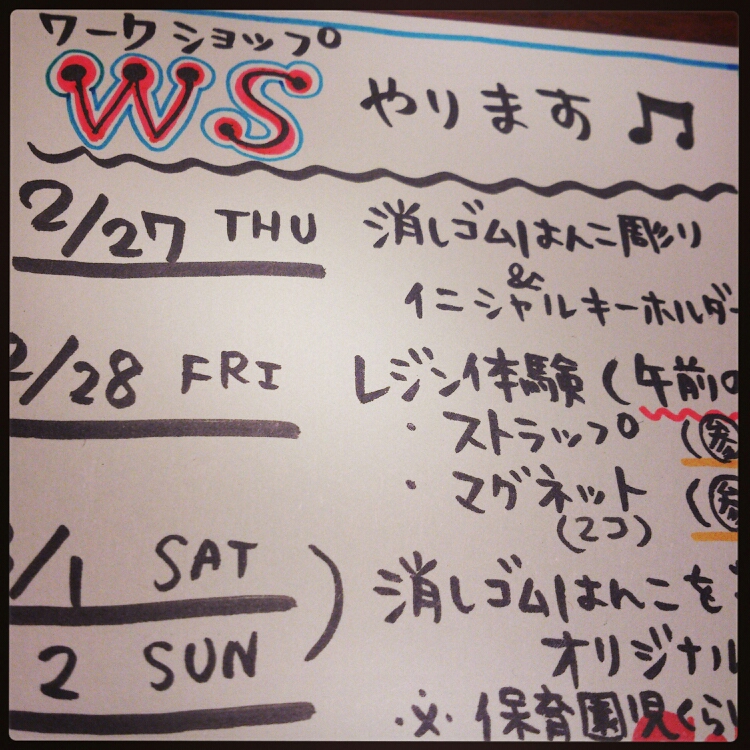 ワークショップ
WS やります♫
2/27 THU 消しゴムはんこ彫り
&
イニシャルキーホルダー
2/28 FRI レジン体験（午前の
・ストラップ （参
・マグネット （参
（2コ）
/1 SAT ) 消しゴムはんこを
2 SUN オリジナル
※保育園児くらい